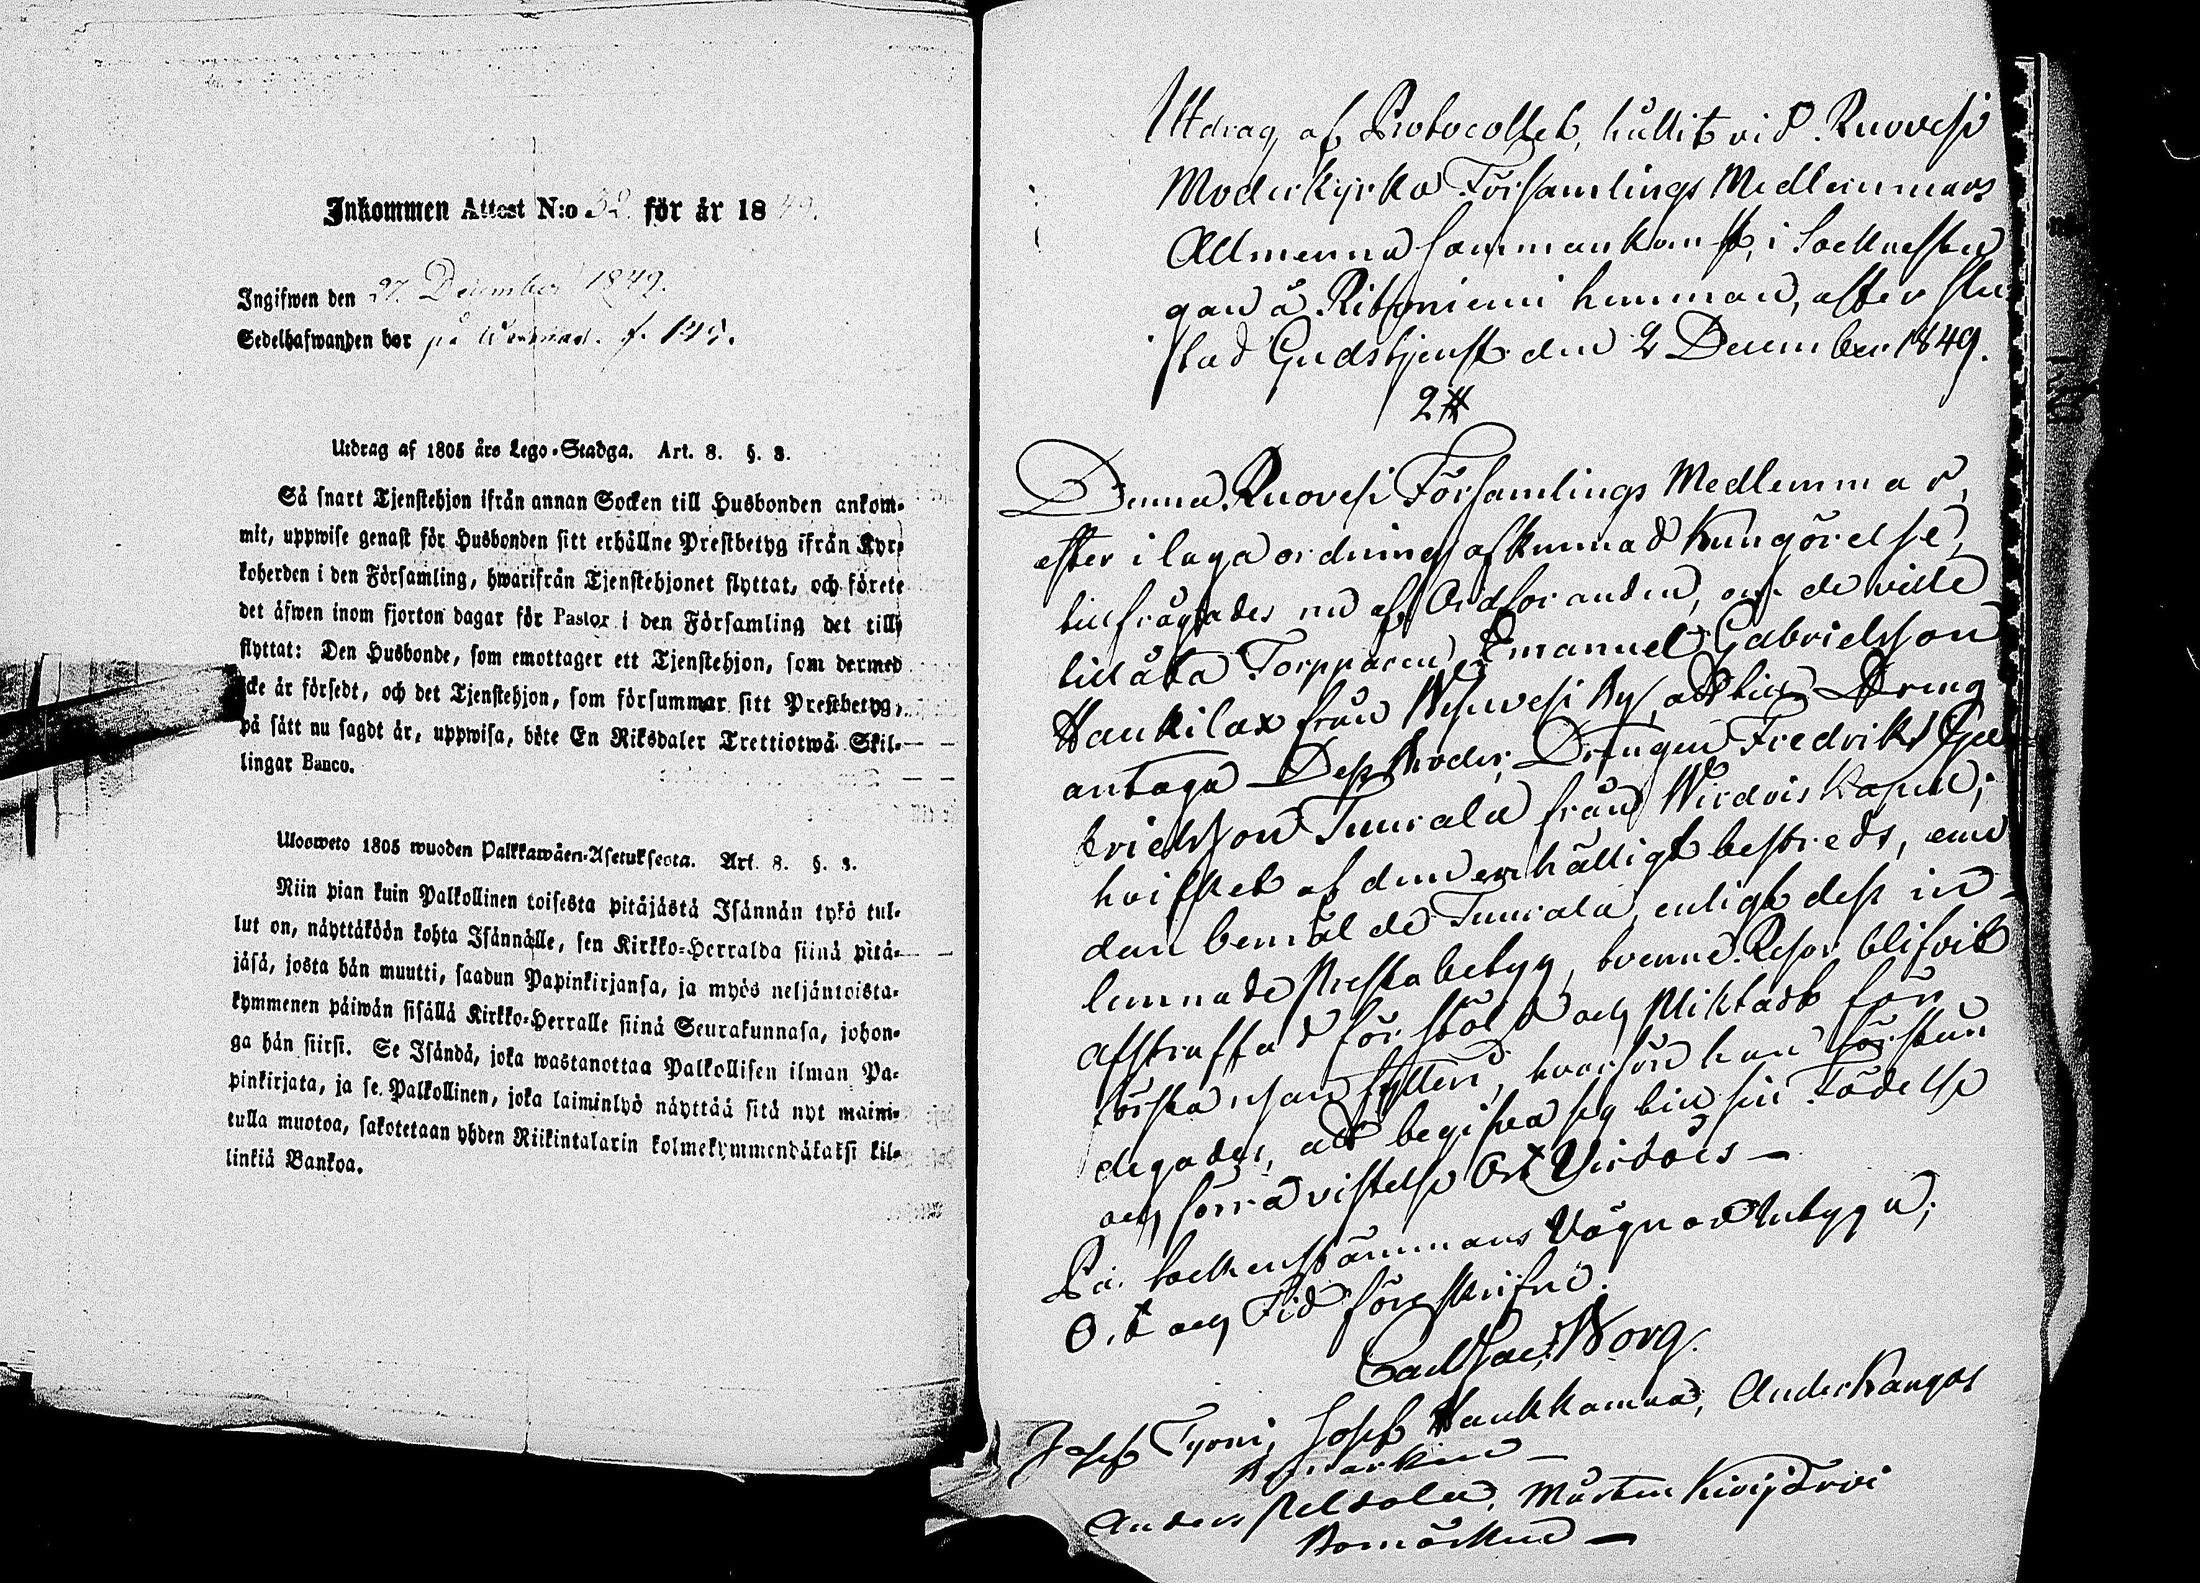 Inkommen Attest N:o 32 för år 1849.
Ingifwen den 27. December 1849.
Sedelhafwanden bor på f. 145.
Utdrag af 1805 års Lego-Stadga. Art. 8. §. 3.
Så snart Tjenstehjon ifrån annan Socken till Husbonden ankom-
mit, uppwise genast för Husbonden sitt erhållne Prestbetyg ifrån Kyr-
koherden i den Församling, hwarifrån Tjenstehjonet flyttat, och förete
det äfwen inom fjorton dagar för Pastor i den Församling det till-
flyttat: Den Husbonde, som emottager ett Tjenstehjon, som dermed
icke är försedt, och det Tjenstehjon, som försummar sitt Prestbetyg,
på sätt nu sagdt är, uppwisa, böte En Riksdaler Trettiotwå Skil-
lingar Banco.
Uloosweto 1805 wuoden Palkkawäen-Asetuksesta. Art. 8. §. 3.
Niin pian kuin Palkollinen toisesta pitäjästä Isännän tykö tul-
lut on, näyttäköön kohta Isännälle, sen Kirkko-Herralda siinä pitä-
jäsä, josta hän muutti, saadun Papinkirjansa, ja myös neljäntoista-
kymmenen päiwän sisällä Kirkko-Herralle siinä Seurakunnasa, johon-
ga hän siirsi. Se Isändä, joka wastanottaa Palkollisen ilman Pa-
pinkirjata, ja se Palkollinen, joka laiminlyö näyttää sitä nyt maini-
tulla muotoa, sakotetaan yhden Riikintalarin kolmekymmendäkaksi kil-
linkiä Bankoa.
Utdrag af Protocollet, hållit vid Ruovesi
Moderkyrko Församlings Medlemmars
Allmenna sammankomst, i Sockenstu
gan å Ritoniemi hemman, efter slu
tad Gudstjenst den 2 December 1849.
2 §
Denna Ruovesi Församlings Medlemmar,
efter i laga ordning afkunnad Kungörelse,
tillfrågades nu af Ordföranden, om de ville
tillåta Torpparen Emanuel Gabrielsson
Haukilax från Wisuvesi By, att till Dräng
antaga Dess Broder, Drängen Fredrik Ga
brielsson Tuurala från Wirdois Kapell;
hvilket af dem enhälligt bestreds, eme
dan bemälde Tuurala, enligt dess in-
lemnade Prestabetyg, tvenne Resor blifvit
afstraffad för stöld och Misstäkt för
hvarför han förstän
digades, att begifva sig till sin Födelse
och förra vistelse Ort Virdois —
På Sockenstämmans Vägnar Intyga;
Ort och Tid föreskrifne.
Carl Jac: Borg.
Josef Tyoni, Josef Haukkamaa, Anders Kangas
Bomärken —
Anders Peldola, Mårten Kivijärvi
Bomärken —